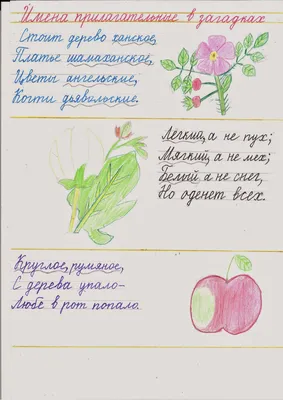 Имена прилагательные в загадках
Стоит дерево ханское,
Платье шамаханское,
Цветы ангельские,
Когти дьявольские.
Легкий, а не пух;
Мягкий, а не мех;
Белый, а не снег,
Но оденет всех.
Круглое, румяное,
С дерева упало–
Любе в рот попало.